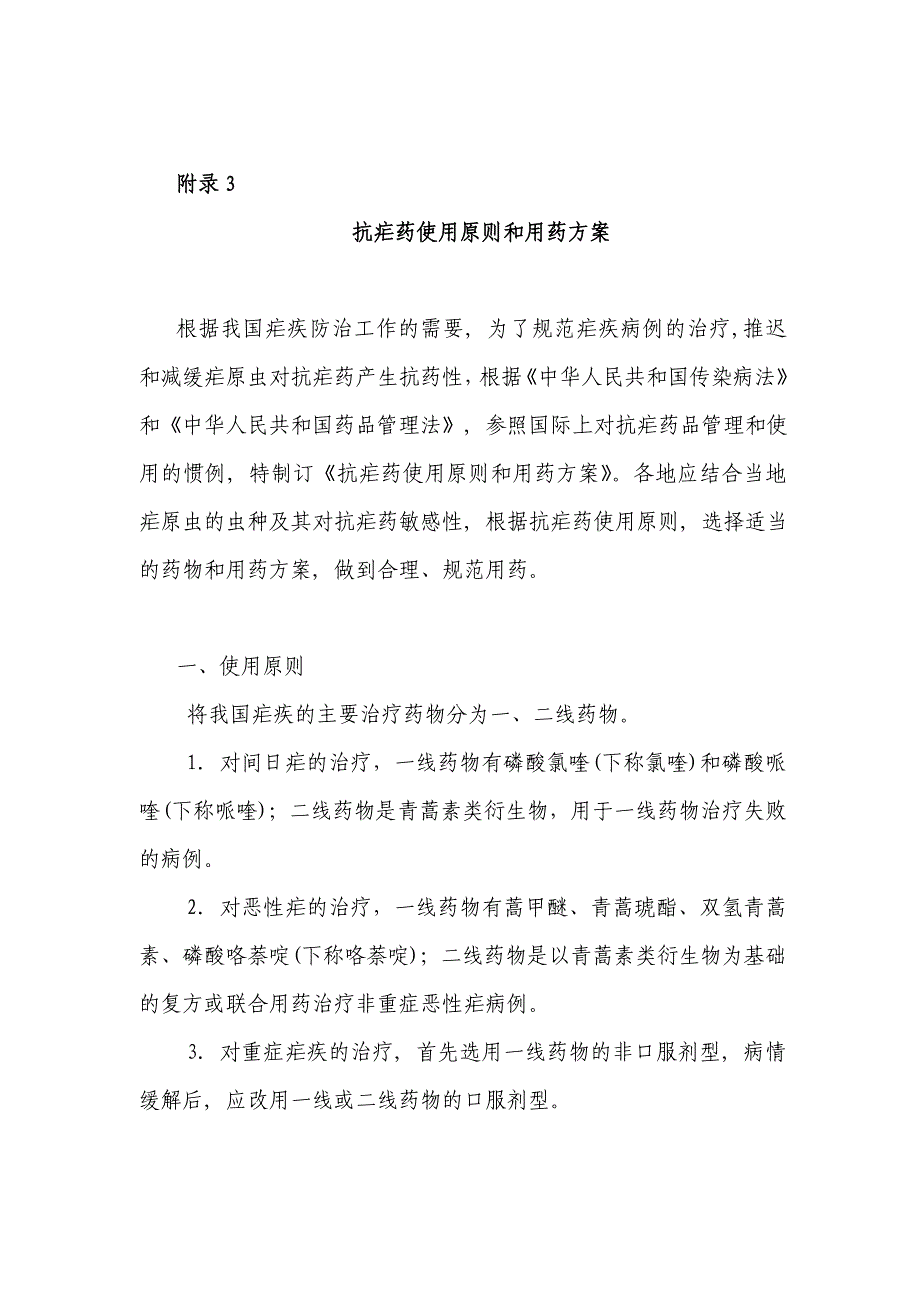 附录 3
抗疟药使用原则和用药方案
根据我国疟疾防治工作的需要，为了规范疟疾病例的治疗,推迟
和减缓疟原虫对抗疟药产生抗药性，根据《中华人民共和国传染病法》
和《中华人民共和国药品管理法》，参照国际上对抗疟药品管理和使
用的惯例，特制订《抗疟药使用原则和用药方案》。各地应结合当地
疟原虫的虫种及其对抗疟药敏感性，根据抗疟药使用原则，选择适当
的药物和用药方案，做到合理、规范用药。
一、使用原则
将我国疟疾的主要治疗药物分为一、二线药物。
1．对间日疟的治疗，一线药物有磷酸氯喹(下称氯喹)和磷酸哌
喹(下称哌喹)；二线药物是青蒿素类衍生物，用于一线药物治疗失败
的病例。
2．对恶性疟的治疗，一线药物有蒿甲醚、青蒿琥酯、双氢青蒿
素、磷酸咯萘啶(下称咯萘啶)；二线药物是以青蒿素类衍生物为基础
的复方或联合用药治疗非重症恶性疟病例。
3．对重症疟疾的治疗，首先选用一线药物的非口服剂型，病情
缓解后，应改用一线或二线药物的口服剂型。